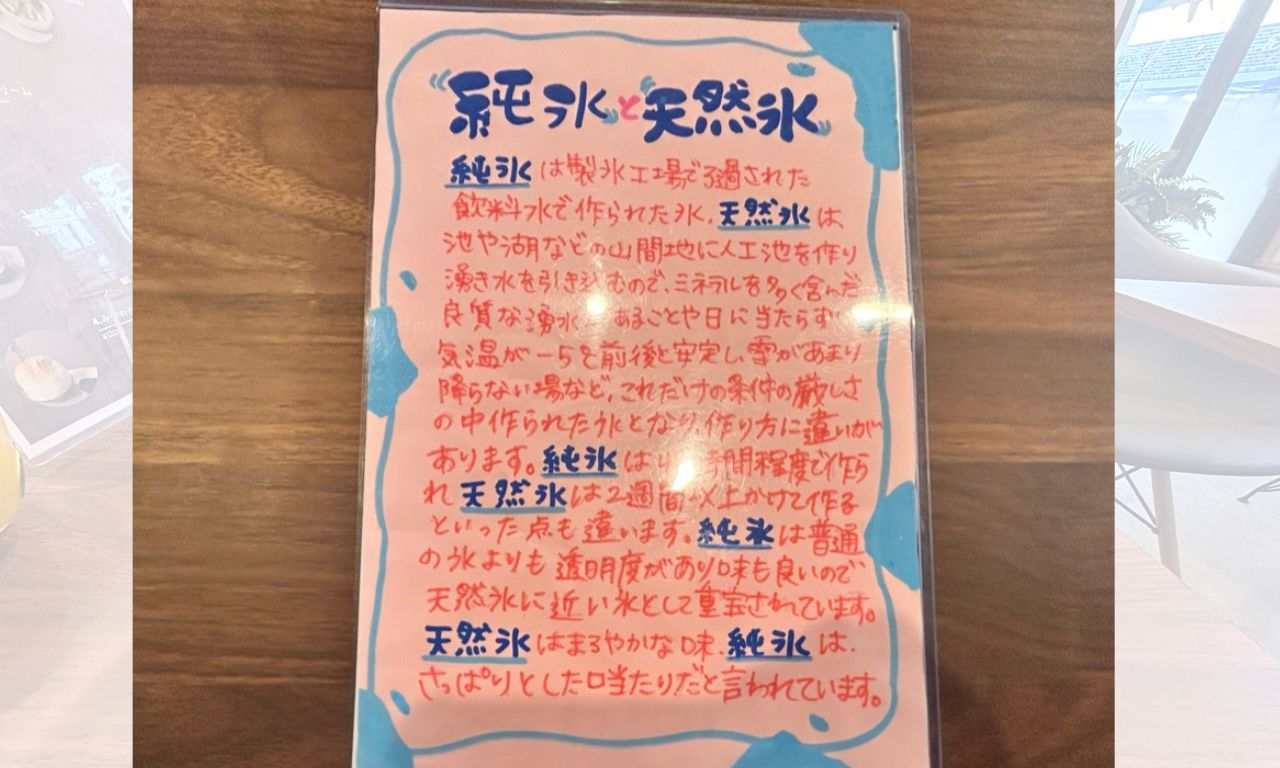 "純氷"と"天然氷"
純氷は製氷工場でろ過された
飲料水で作られた氷、天然氷は、
池や湖などの山間地に人工池を作り
湧き水を引き込むので、ミネラルを多く含んだ
良質な湧水であることや日に当たらず
気温が-5℃前後と安定し、雪があまり
降らない場など、これだけの条件の厳しさ
の中作られた氷となり、作り方に違いが
あります。純氷は 時間程度で作ら
れ天然氷は2週間以上かけて作る
といった点も違います。純氷は普通
の氷よりも透明度があり味も良いので
天然氷に近い氷として重宝されています。
天然氷はまろやかな味、純氷は、
さっぱりとした口当たりだと言われています。
リーム